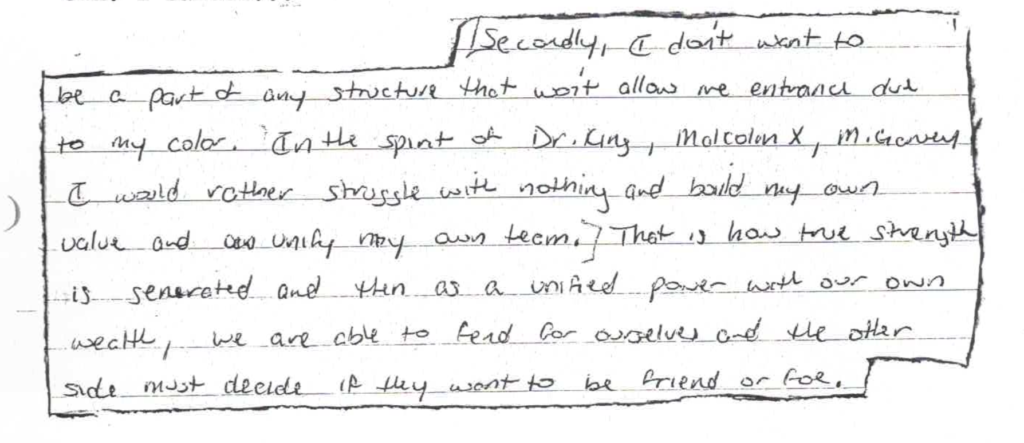 [Secondly, I don't want to
be a part of any structure that won't allow me entrance due
to my color. In the spirit of Dr. King, Malcolm X, M. Garvey
I would rather struggle with nothing and build my own
value and unify my own team.] That is how true strength
is generated and then as a unified power with our own
wealth, we are able to fend for ourselves and the other
side must decide if they want to be friend or foe.